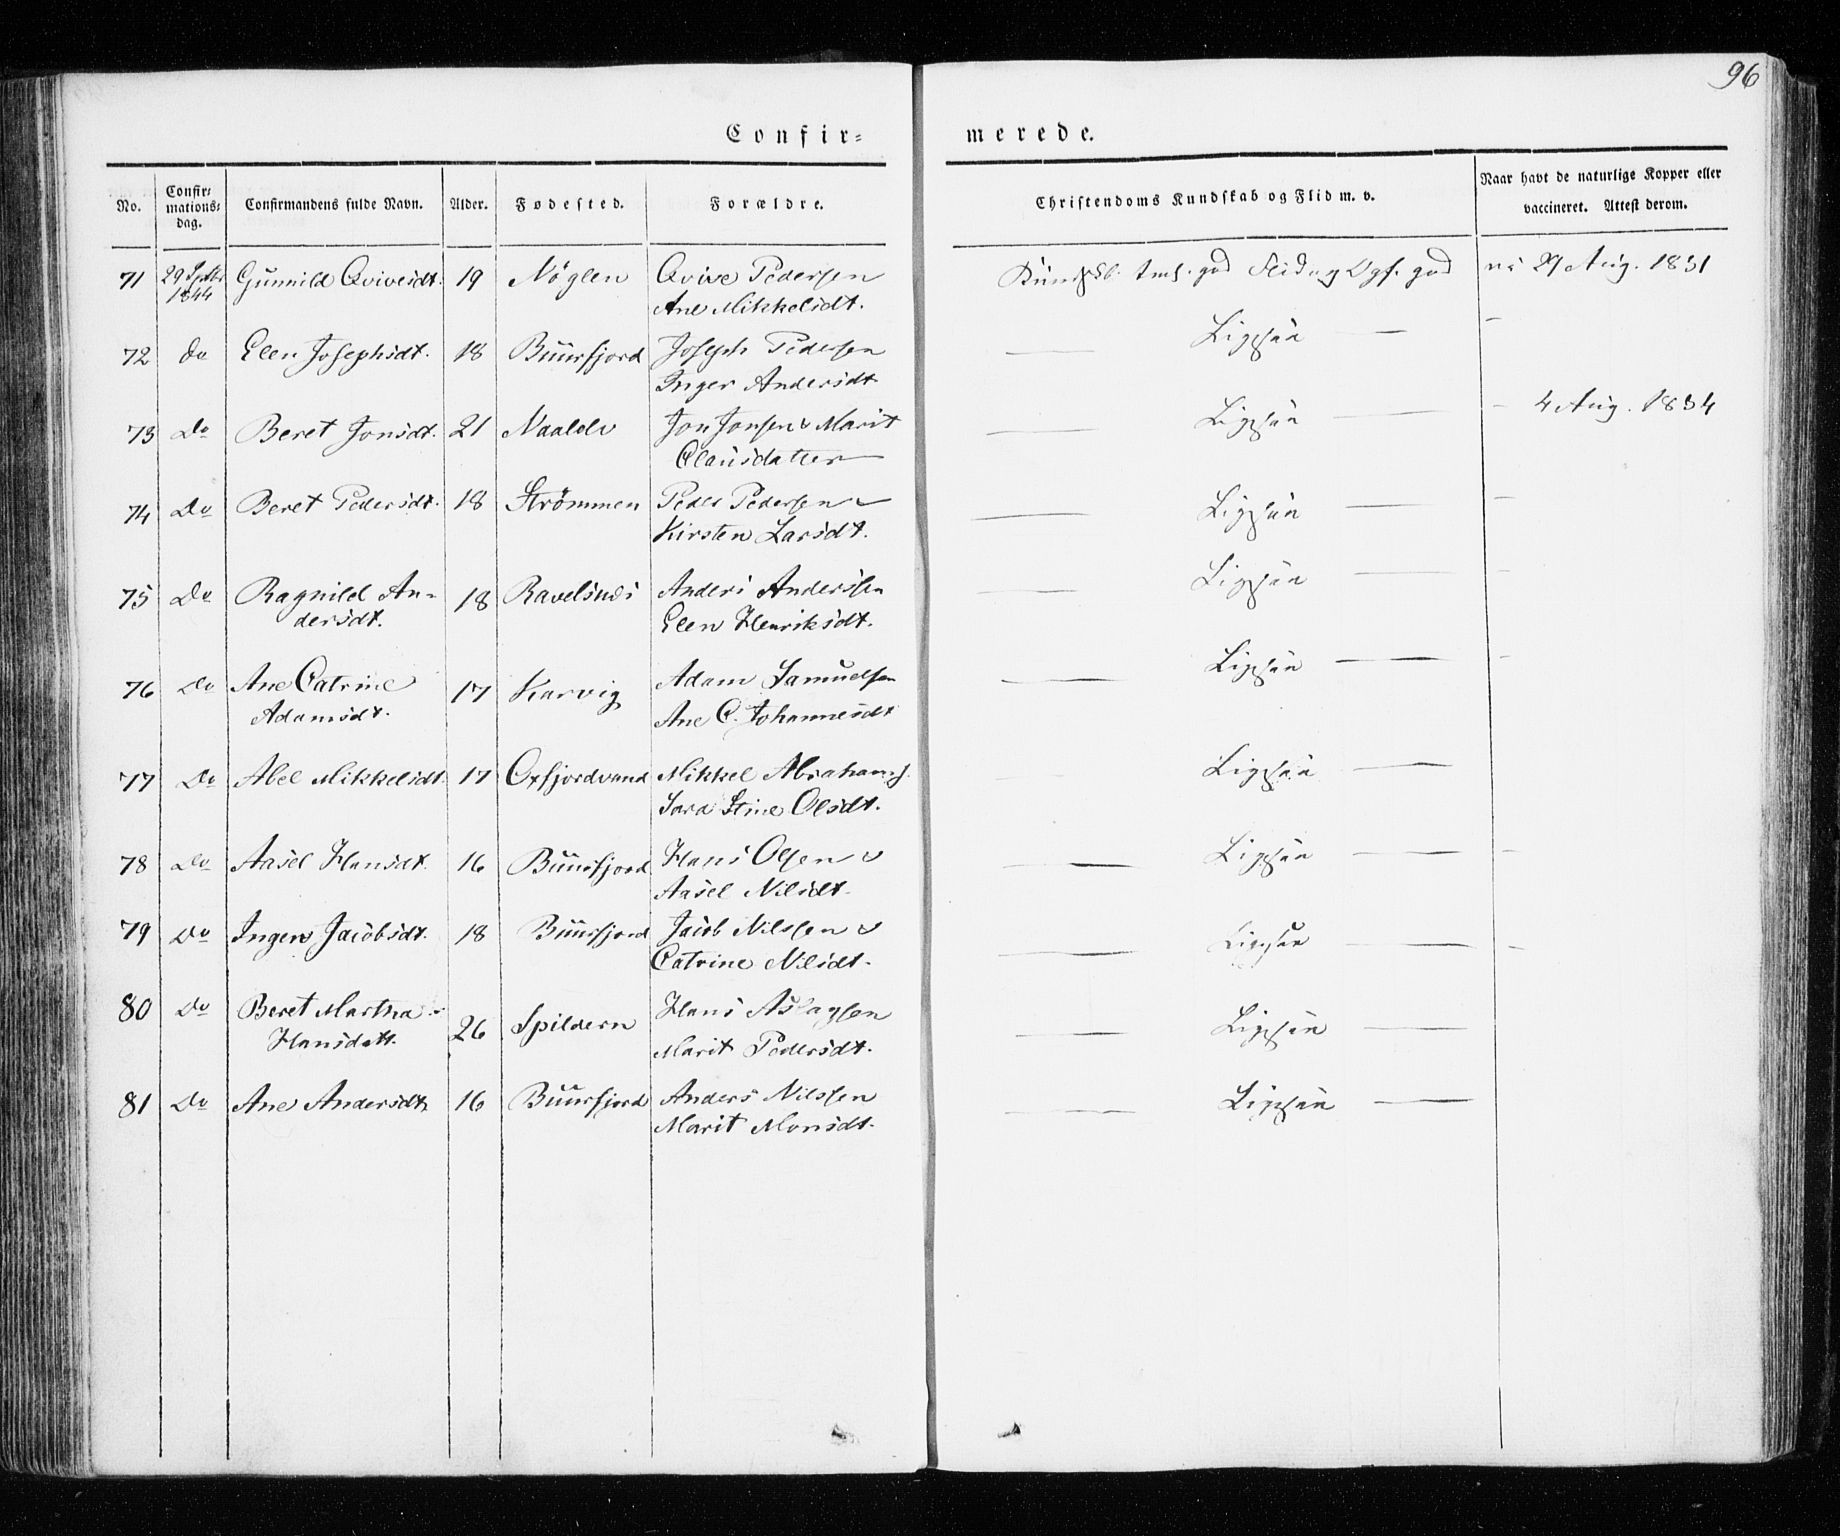 96
Confir=
merede.
No. Confir=mations=dag. Confirmandens fulde Navn. Alder. Fødested. Forældre. Christendoms Kundskab og Flid m. v. Naar havt de naturlige Kopper eller vaccineret. Attest derom.
71 29 Sptbr 1844 Gunnild Qvivesdt. 19 Nöglen Qvive Pedersen god Flid og Opf. god 29 Aug. 1831
Ane Mikkelsdt.
72 do Elen Josephsdt. 18 Buursfjord Joseph Pedersen — Ligesaa — –
Inger Andersdt
73 Do Beret Jonsdt. 21 Jon Jonsen & Marit — Ligesaa — – 4 Aug. 1834
Clausdatter
74 Do Beret Pedersdt. 18 Strømmen Peder Pedersen & — Ligesaa — –
Kirsten Larsdt.
75 Do Ragnild An- 18 Ravelsnæs Anders Anderssen — Ligesaa — –
dersdt. Elen Henriksdt.
76 Do Ane Catrine 17 Karvig Adam Samuelsen — Ligesaa — –
Adamsdt. Ane C. Johannesdt
77 Do Abel Mikkelsdt 17 Oxfjordvand Mikkel Abrahams. — Ligesaa —
Sara Stine Olsdt.
78 Do Aasel Hansdt. 16 Buursfjord Hans Olsen & — Ligesaa — –
Aasel Nilsdt.
79 Do Inger Jacobsdt. 18 Buursfjord Jacob Nilssen & — Ligesaa — –
Catrine Nilsdt.
80 Do Beret Martha 26 Spildern Hans Aslagsen — Ligesaa —
Hansdatt. Marit Pedersdt.
81 Do Ane Andersdt 16 Buursfjord Anders Nilssen — Ligesaa —
Marit Monsdt.